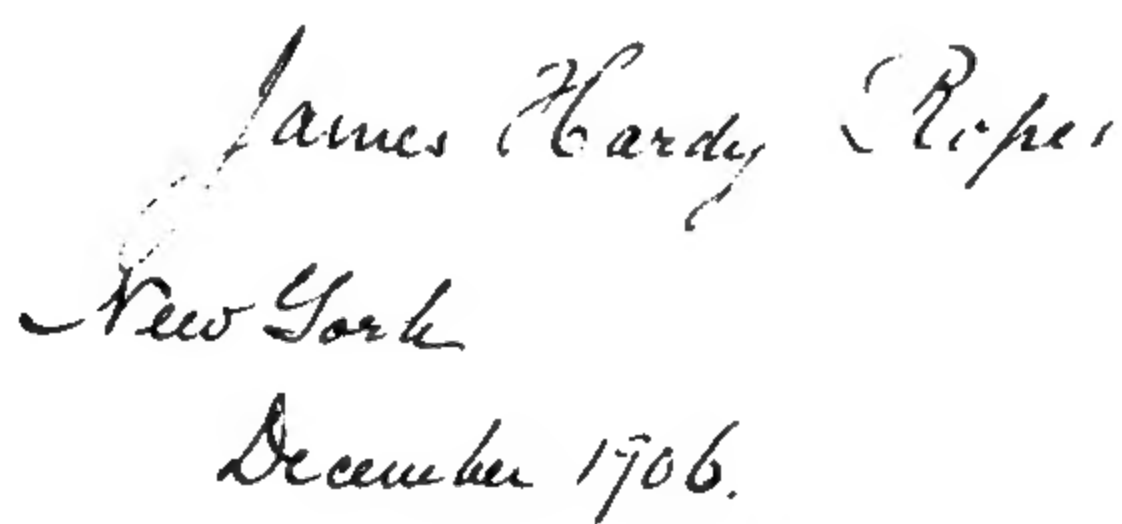 James Hardy Ropes
New York
December 1906.